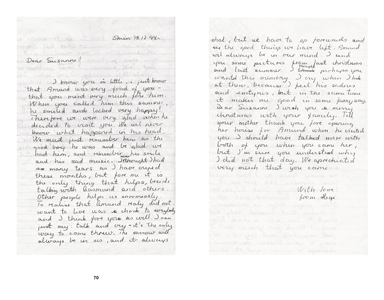 19.12.94.
Dear Susanne!
I know you so little, I just know
that Amund was very fond of you -
that you meant very much for him.
When you called him this summer,
he smiled and looked very happy!
Therefore we were very glad when he
decided to visit you. We will never
know what happened in his head.
We must just remember him as the
good boy he was and be what we
had him, and remember his smile
and his sad music.
so many tears as I have cryed
these months, but for me it is
the only thing that helps, besides
talking with Rasmund and others.
Other people helps us enormously.
To realize that Amund really did not
want to live was a shock to everybody
and I think for you as well. I can
just say: talk and cry - it's the only
way to come throw. The sorrow will
always be in us, and it always
shal, but we have to go forwards and
see the good things we have left. Amund
will always be in our mind. I send
you some pictures from last christmas
and last summer. I thought perhaps you
wanted this memory. I cry when I look
at them, because I feel his sadness
and destiny, but in the same time
it makes me good in some way.
Dear Susanne! I wish you a merry
christmas with your family. Tell
your mother thank you for opening
her house for Amund when he visited
you. I should have talked more with
both of you when you came here,
but I'm sure you understand why
I did not that day. We apreciated
very much that you came.
With love
from
70